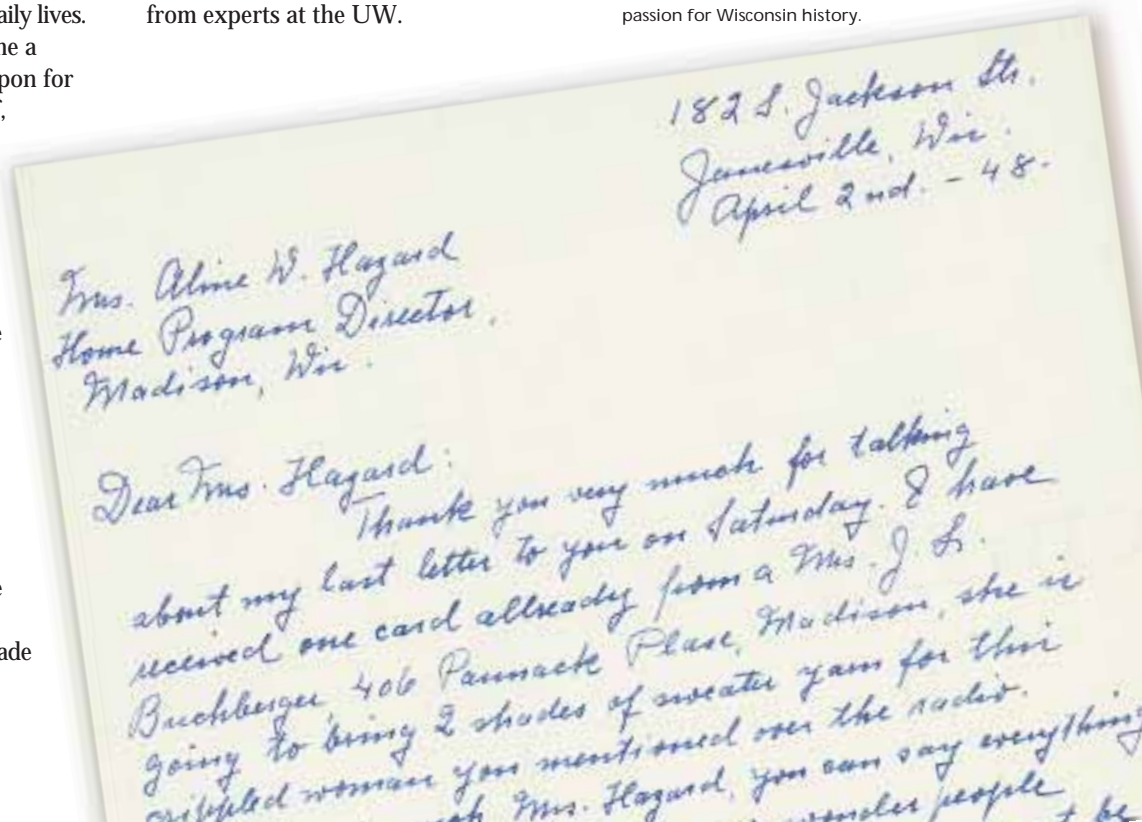 aily lives.
ne a
pon for
from experts at the UW.
passion for Wisconsin history.
ade
182 S. Jackson Str.
Janesville, Wis.
April 2nd. - 48.
Mrs. Aline W. Hazard
Home Program Director,
Madison, Wis.
Dear Mrs. Hazard:
Thank you very much for talking
about my last letter to you on Saturday. I have
received one card allready from a Mrs. J. L.
Buchberger, 406 Plase, Madison, she is
going to bring 2 shades of sweater yarn for this
crippled woman you mentioned over the radio.
Mrs. Hazard, you can say everything
wonder people
t be